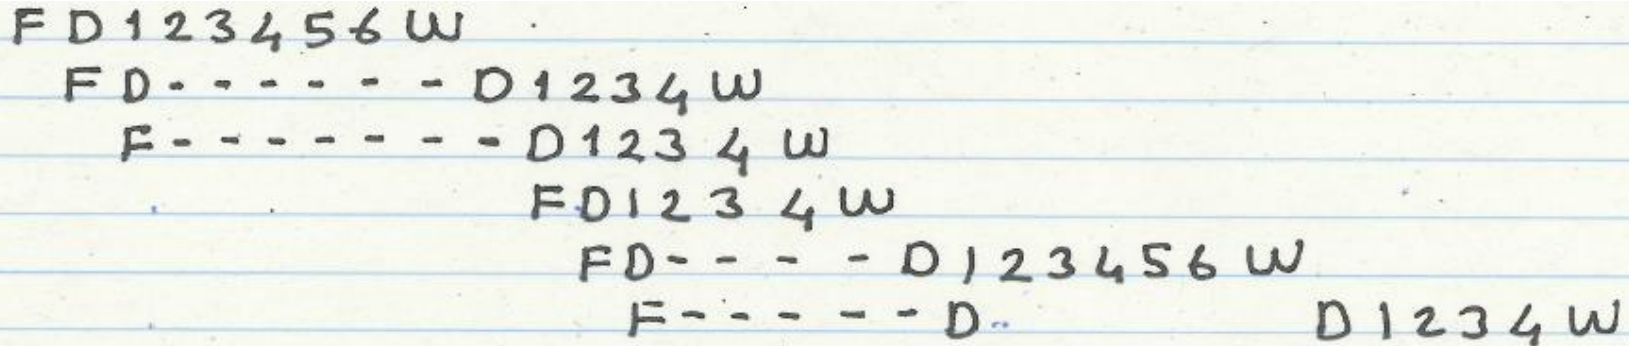 F D 1 2 3 4 5 6 W
F D - - - - - - D 1 2 3 4 W
F - - - - - - - D 1 2 3 4 W
F D 1 2 3 4 W
F D - - - - D 1 2 3 4 5 6 W
F - - - - - - D D 1 2 3 4 W